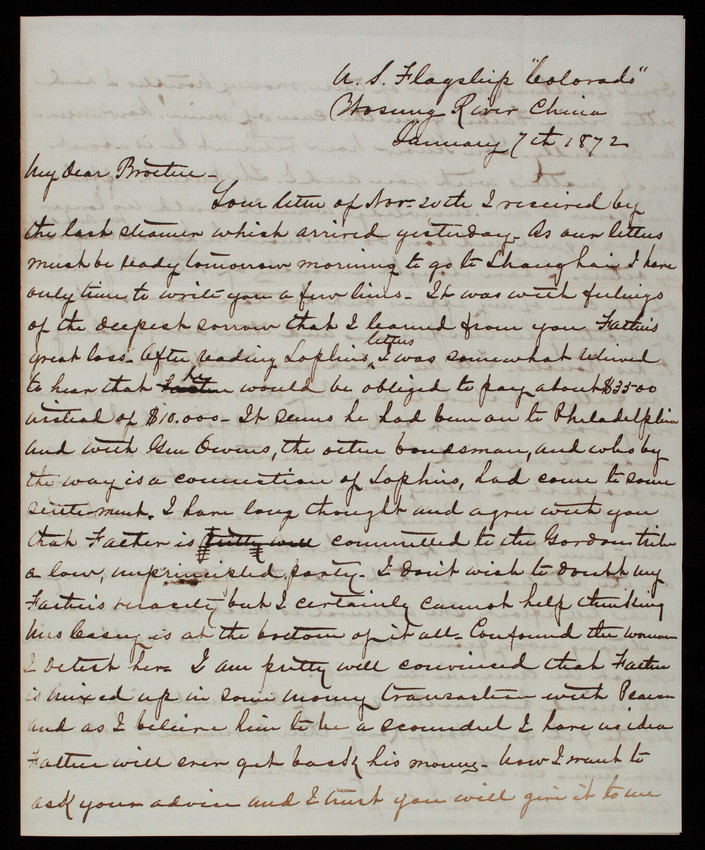 U. S. Flagship "Colorado"
Wosung River China
January 7th 1872
My dear Brother -
Your letter of Nov. 20th I received by
the last steamer which arrived yesterday. As our letters
must be ready tomorrow morning to go to Shanghai I have
only time to write you a few lines - It was with feelings
of the deepest sorrow that I learned from you Father's
great loss. After reading Sophie's letters I was somewhat relieved
to hear that he would be obliged to pay about $3500
instead of $10.000 - It seems he had been on to Philadelphia
and with Gen Owens, the other bondsman, and who by
the way is a connection of Sophie's, had come to some
settlement. I have long thought and agree with you
that Father is pretty well committed to the Gordon tribe
a low, unprincipled party - I don't wish to doubt my
Father's veracity but I certainly cannot help thinking
Mrs Casey is at the bottom of it all - Confound the woman
I detest her - I am pretty well convinced that Father
is mixed up in some money transaction with
and as I believe him to be a scoundrel I have no idea
Father will ever get back his money - Now I want to
ask your advice and I trust you will give it to me